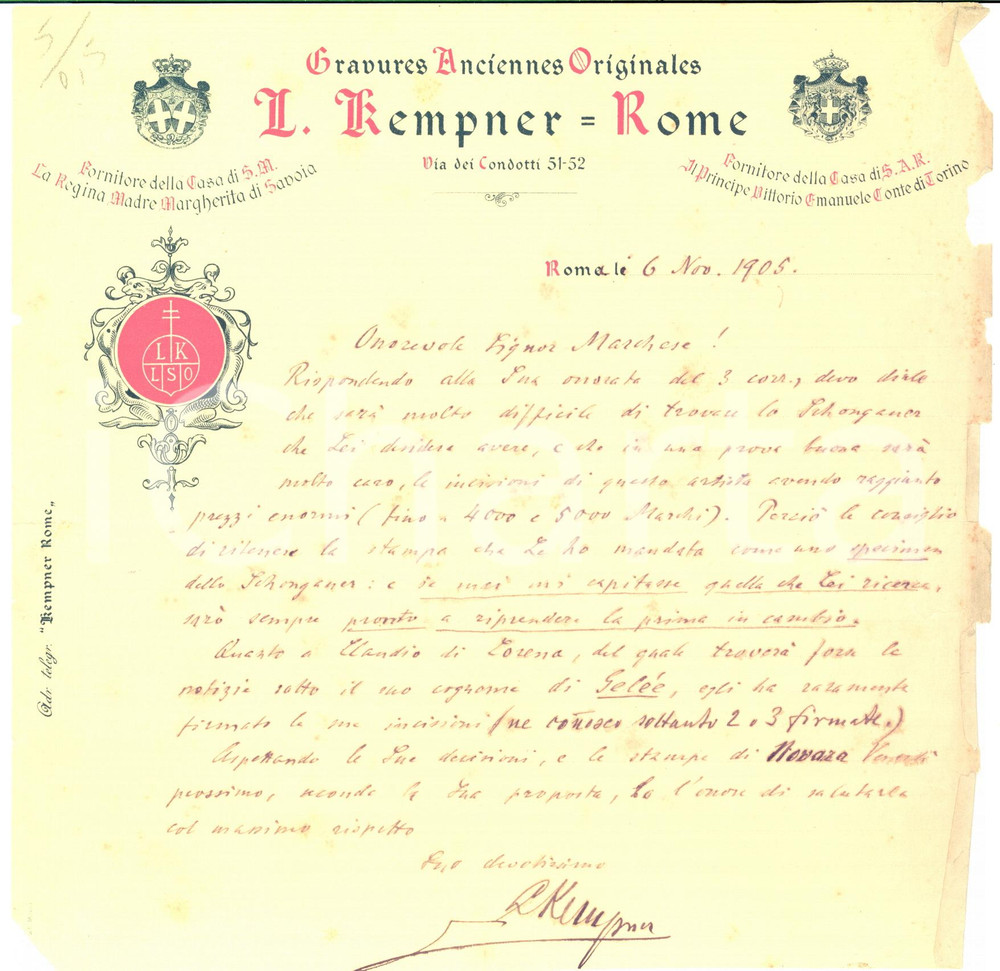 5/5
Gravures Anciennes Originales
L. Kempner = Rome
Via dei Condotti 51-52
Fornitore della Casa di S.M.
La Regina Madre Margherita di Savoia
Fornitore della Casa di S.A.R.
Il Principe Vittorio Emanuele Conte di Torino
L K
L S O
Roma le 6 Nov. 1905.
Onorevole Signor Marchese !
Rispondendo alla Sua onorata del 3 corr., devo dirle
che sarà molto difficile di trovare lo Schongauer
che Lei desidera avere, e che in una prova buona sarà
molto caro, le incisioni di questo artista avendo raggiunto
prezzi enormi (fino a 4000 e 5000 Marchi). Perciò le consiglio
di ritenere la stampa che Le ho mandata come uno specimen
dello Schongauer : e se mai mi capitasse quella che Lei ricerca,
sarò sempre pronto a riprendere la prima in cambio.
Quanto a Claudio di Lorena, del quale troverà forse le
notizie sotto il suo cognome di Gelée, egli ha raramente
firmato le sue incisioni (ne conosco soltanto 2 o 3 firmate.)
Aspettando le Sue decisioni, e le stampe di Novara
prossimo, secondo la Sua proposta, ho l'onore di salutarla
col massimo rispetto
Suo devotissimo
L Kempner
Adr. telegr. "Kempner Rome"